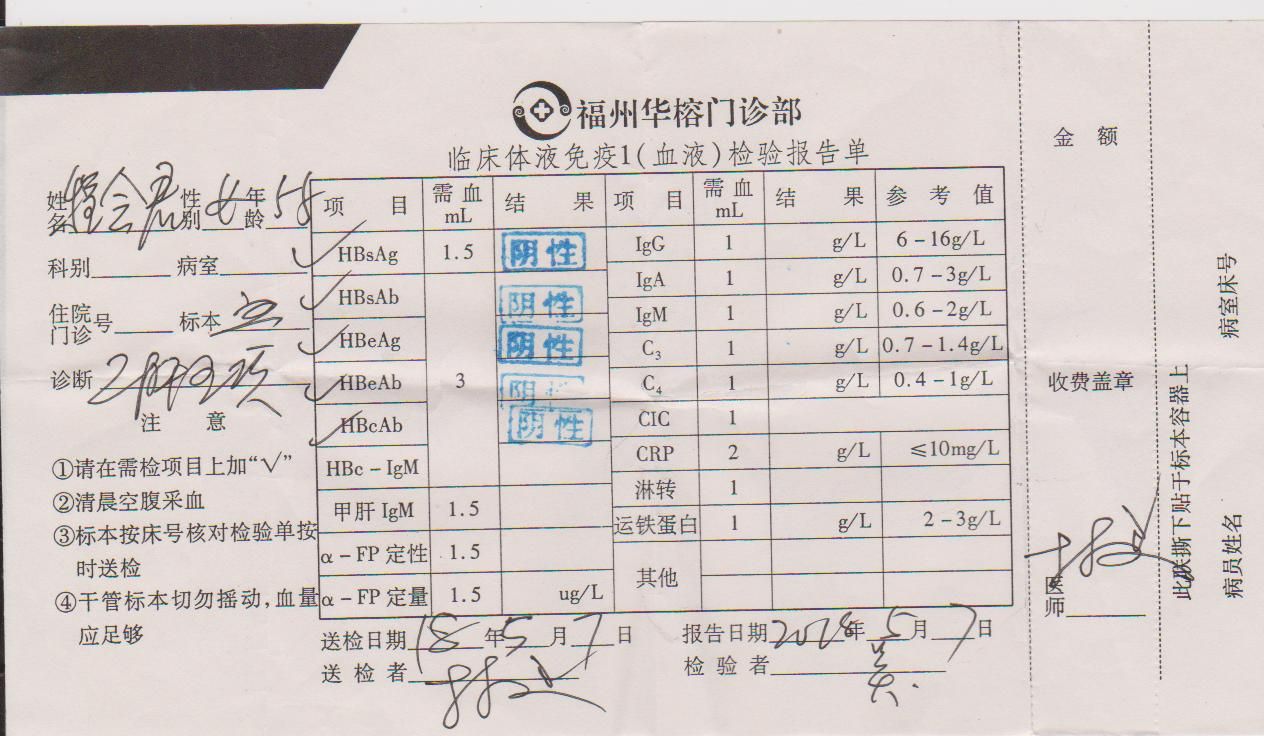 福州华榕门诊部
临床体液免疫1(血液)检验报告单
姓名 会君 性别 女 年龄 58
科别 病室
住院门诊号 标本
诊断 项
注 意
①请在需检项目上加“√”
②清晨空腹采血
③标本按床号核对检验单按
时送检
④干管标本切勿摇动,血量
应足够
项 目 需血mL 结 果 项 目 需血mL 结 果 参 考 值
√ HBsAg 1.5 阴性 IgG 1 g/L 6-16g/L
√ HBsAb 阴性 IgA 1 g/L 0.7-3g/L
√ HBeAg 阴性 IgM 1 g/L 0.6-2g/L
√ HBeAb 3 阴性 C₃ 1 g/L 0.7-1.4g/L
√ HBcAb 阴性 C₄ 1 g/L 0.4-1g/L
HBc-IgM CIC 1
甲肝IgM 1.5 CRP 2 g/L ≤10mg/L
α-FP定性 1.5 淋转 1
α-FP定量 1.5 ug/L 运铁蛋白 1 g/L 2-3g/L
其他
送检日期 18年5月7日 报告日期 2018年5月7日
送 检 者 检 验 者
金 额
收费盖章
医师
此联撕下贴于标本容器上
病室床号
病员姓名